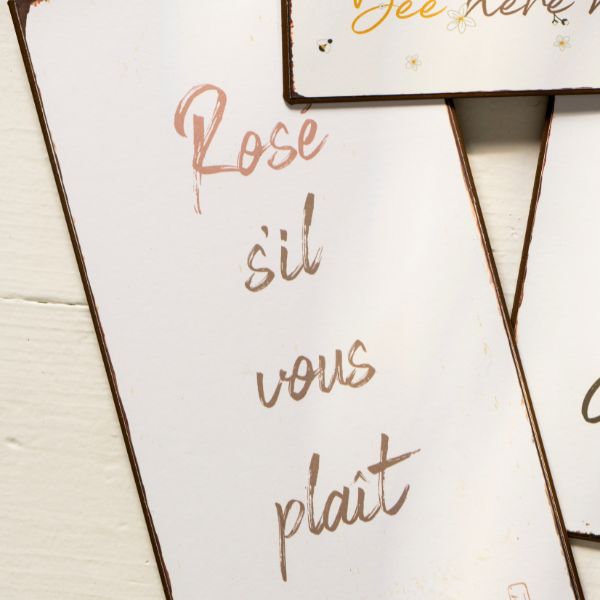 Bee here n
Rosé
s'il
vous
plaît